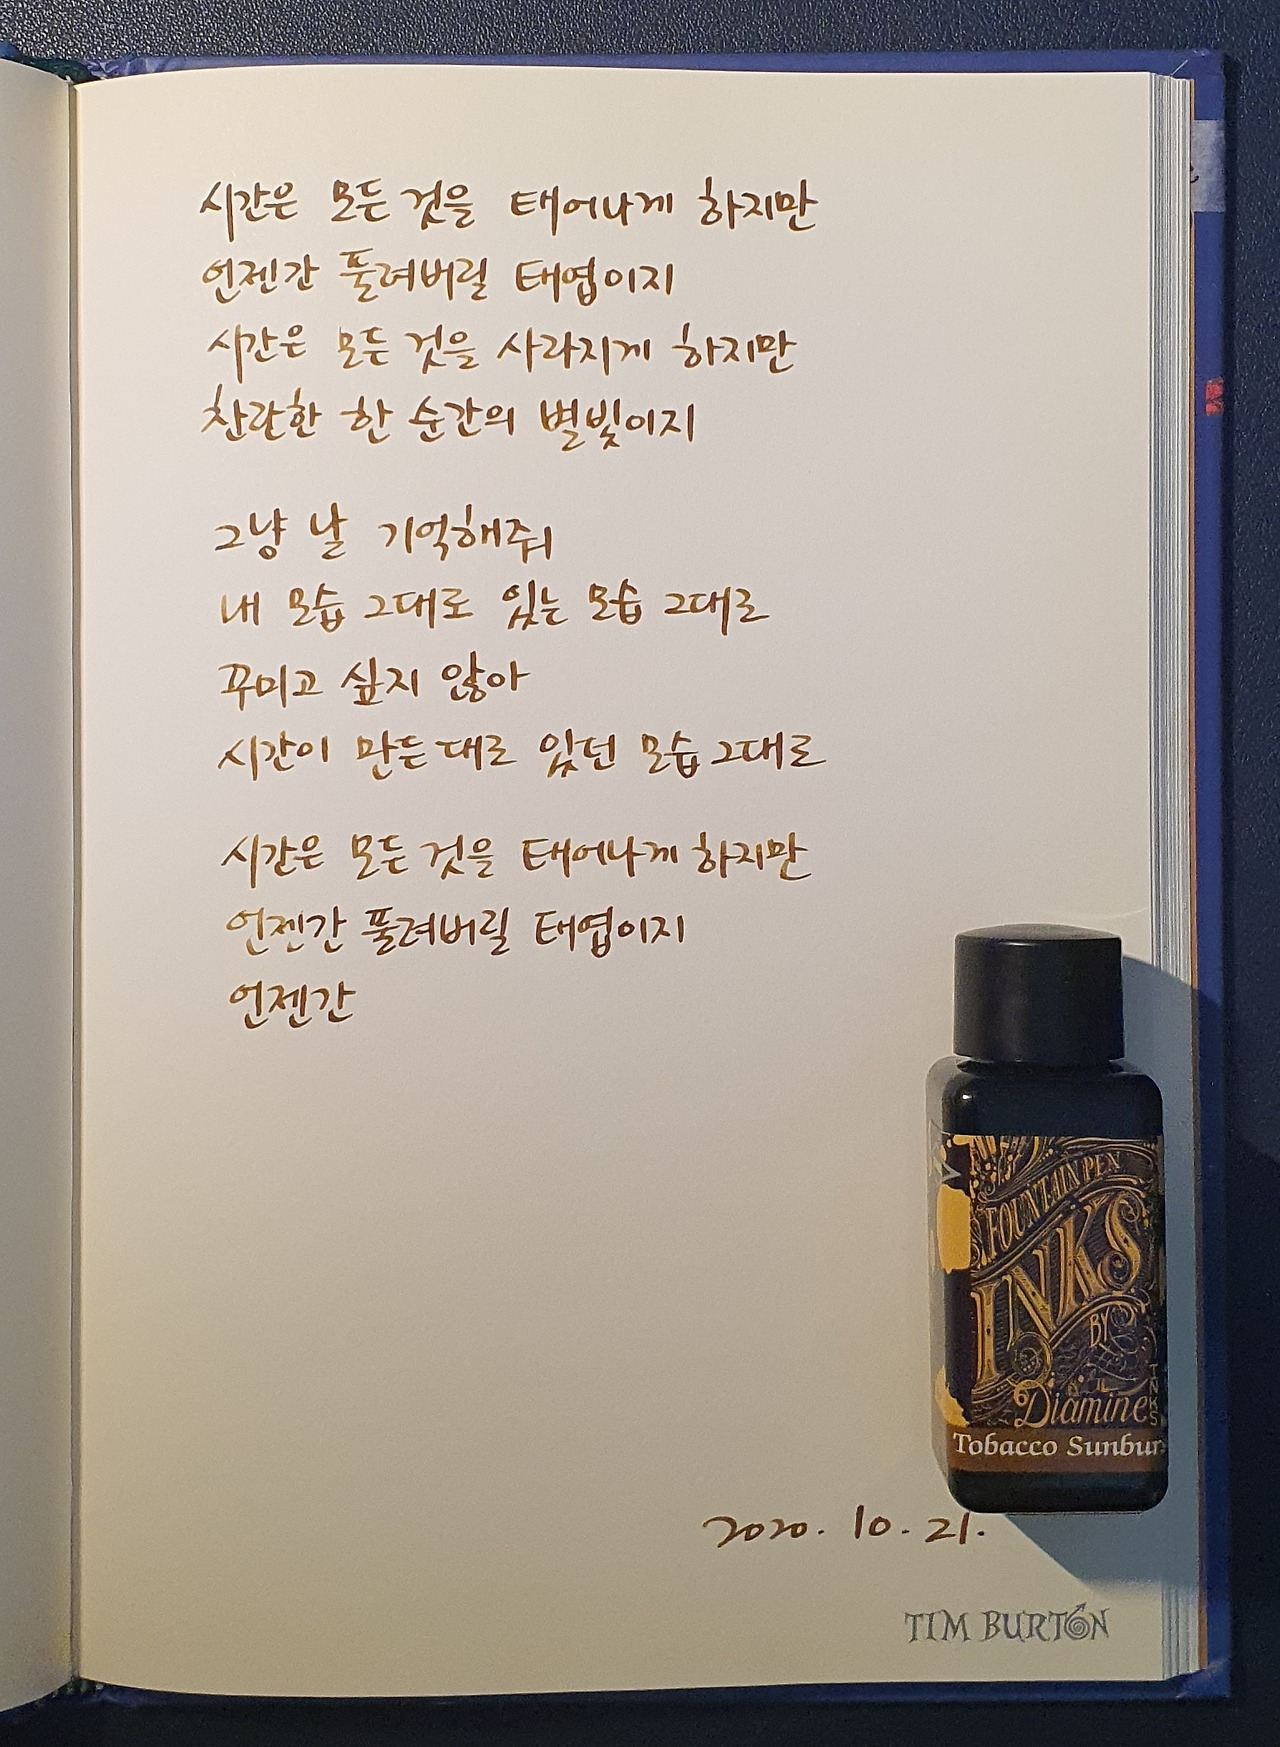 시간은 모든 것을 태어나게 하지만
언젠간 풀려버릴 태엽이지
시간은 모든 것을 사라지게 하지만
찬란한 한 순간의 별빛이지
그냥 날 기억해줘
내 모습 그대로 있는 모습 그대로
꾸미고 싶지 않아
시간이 만든대로 있던 모습 그대로
시간은 모든 것을 태어나게 하지만
언젠간 풀려버릴 태엽이지
언젠간
FOUNTAIN PEN
INKS
BY
Diamine
Tobacco Sunbur
2020. 10. 21.
TIM BURTON